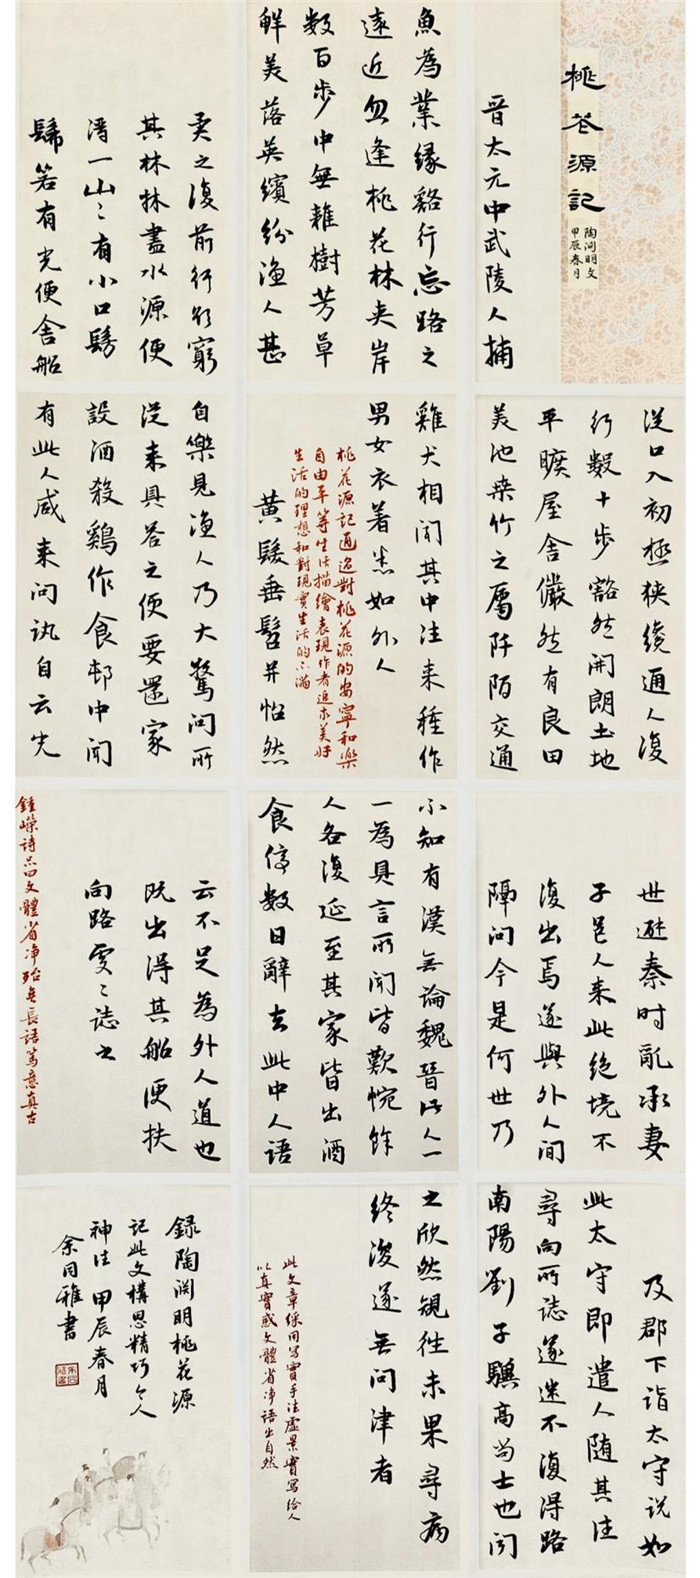 桃花源記
陶淵明文
甲辰春月
晉太元中武陵人捕
魚為業緣谿行忘路之
遠近忽逢桃花林夹岸
数百步中無雜樹芳草
鲜美落英缤纷漁人甚
異之復前行欲窮
其林林盡水源便
得一山〻有小口髣
髴若有光便舍船
從口入初極狭纔通人復
行數十步豁然開朗土地
平曠屋舍儼然有良田
美池桑竹之屬阡陌交通
雞犬相聞其中往来種作
男女衣著悉如外人
桃花源記通过對桃花源的安寧和樂
自由平等生活描繪表現作者追求美好
生活的理想和對現實生活的不滿
黄髮垂髫并怡然
自樂見漁人乃大驚問所
從来具答之便要還家
設酒殺鷄作食邨中聞
有此人咸来问訊自云先
世避秦時亂率妻
子邑人来此绝境不
復出焉遂與外人間
隔问今是何世乃
不知有漢無論魏晉此人一
一為具言所聞皆歎惋餘
人各復延至其家皆出酒
食停數日辭去此中人語
云不足為外人道也
既出得其船便扶
向路處〻誌之
鍾嶸诗品曰文體省净殆無長語篤意真古
及郡下詣太守说如
此太守即遣人随其往
尋向所誌遂迷不復得路
南陽劉子驥高尚士也闻
之欣然規往未果尋病
终後遂無问津者
此文章採用写實手法虚景實写给人
以真實感文體省净語出自然
録陶渊明桃花源
記此文構思精巧令人
神往甲辰春月
余同雅書